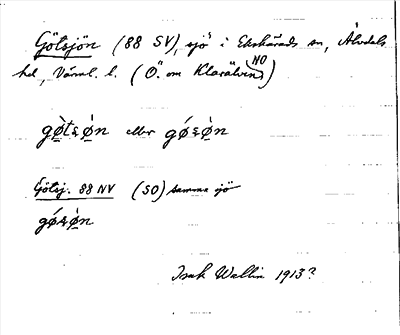 Götsjön (88 SV), sjö i Ekshärads sn, Älvdals
hd, Värml. l. (Ö. om Klarälven) NO
gø̀tsø̀n eller gǿsø̀n
Götsj. 88 NV (SO) samma sjö
gǿsø̀n
Isak Wallin 1913?